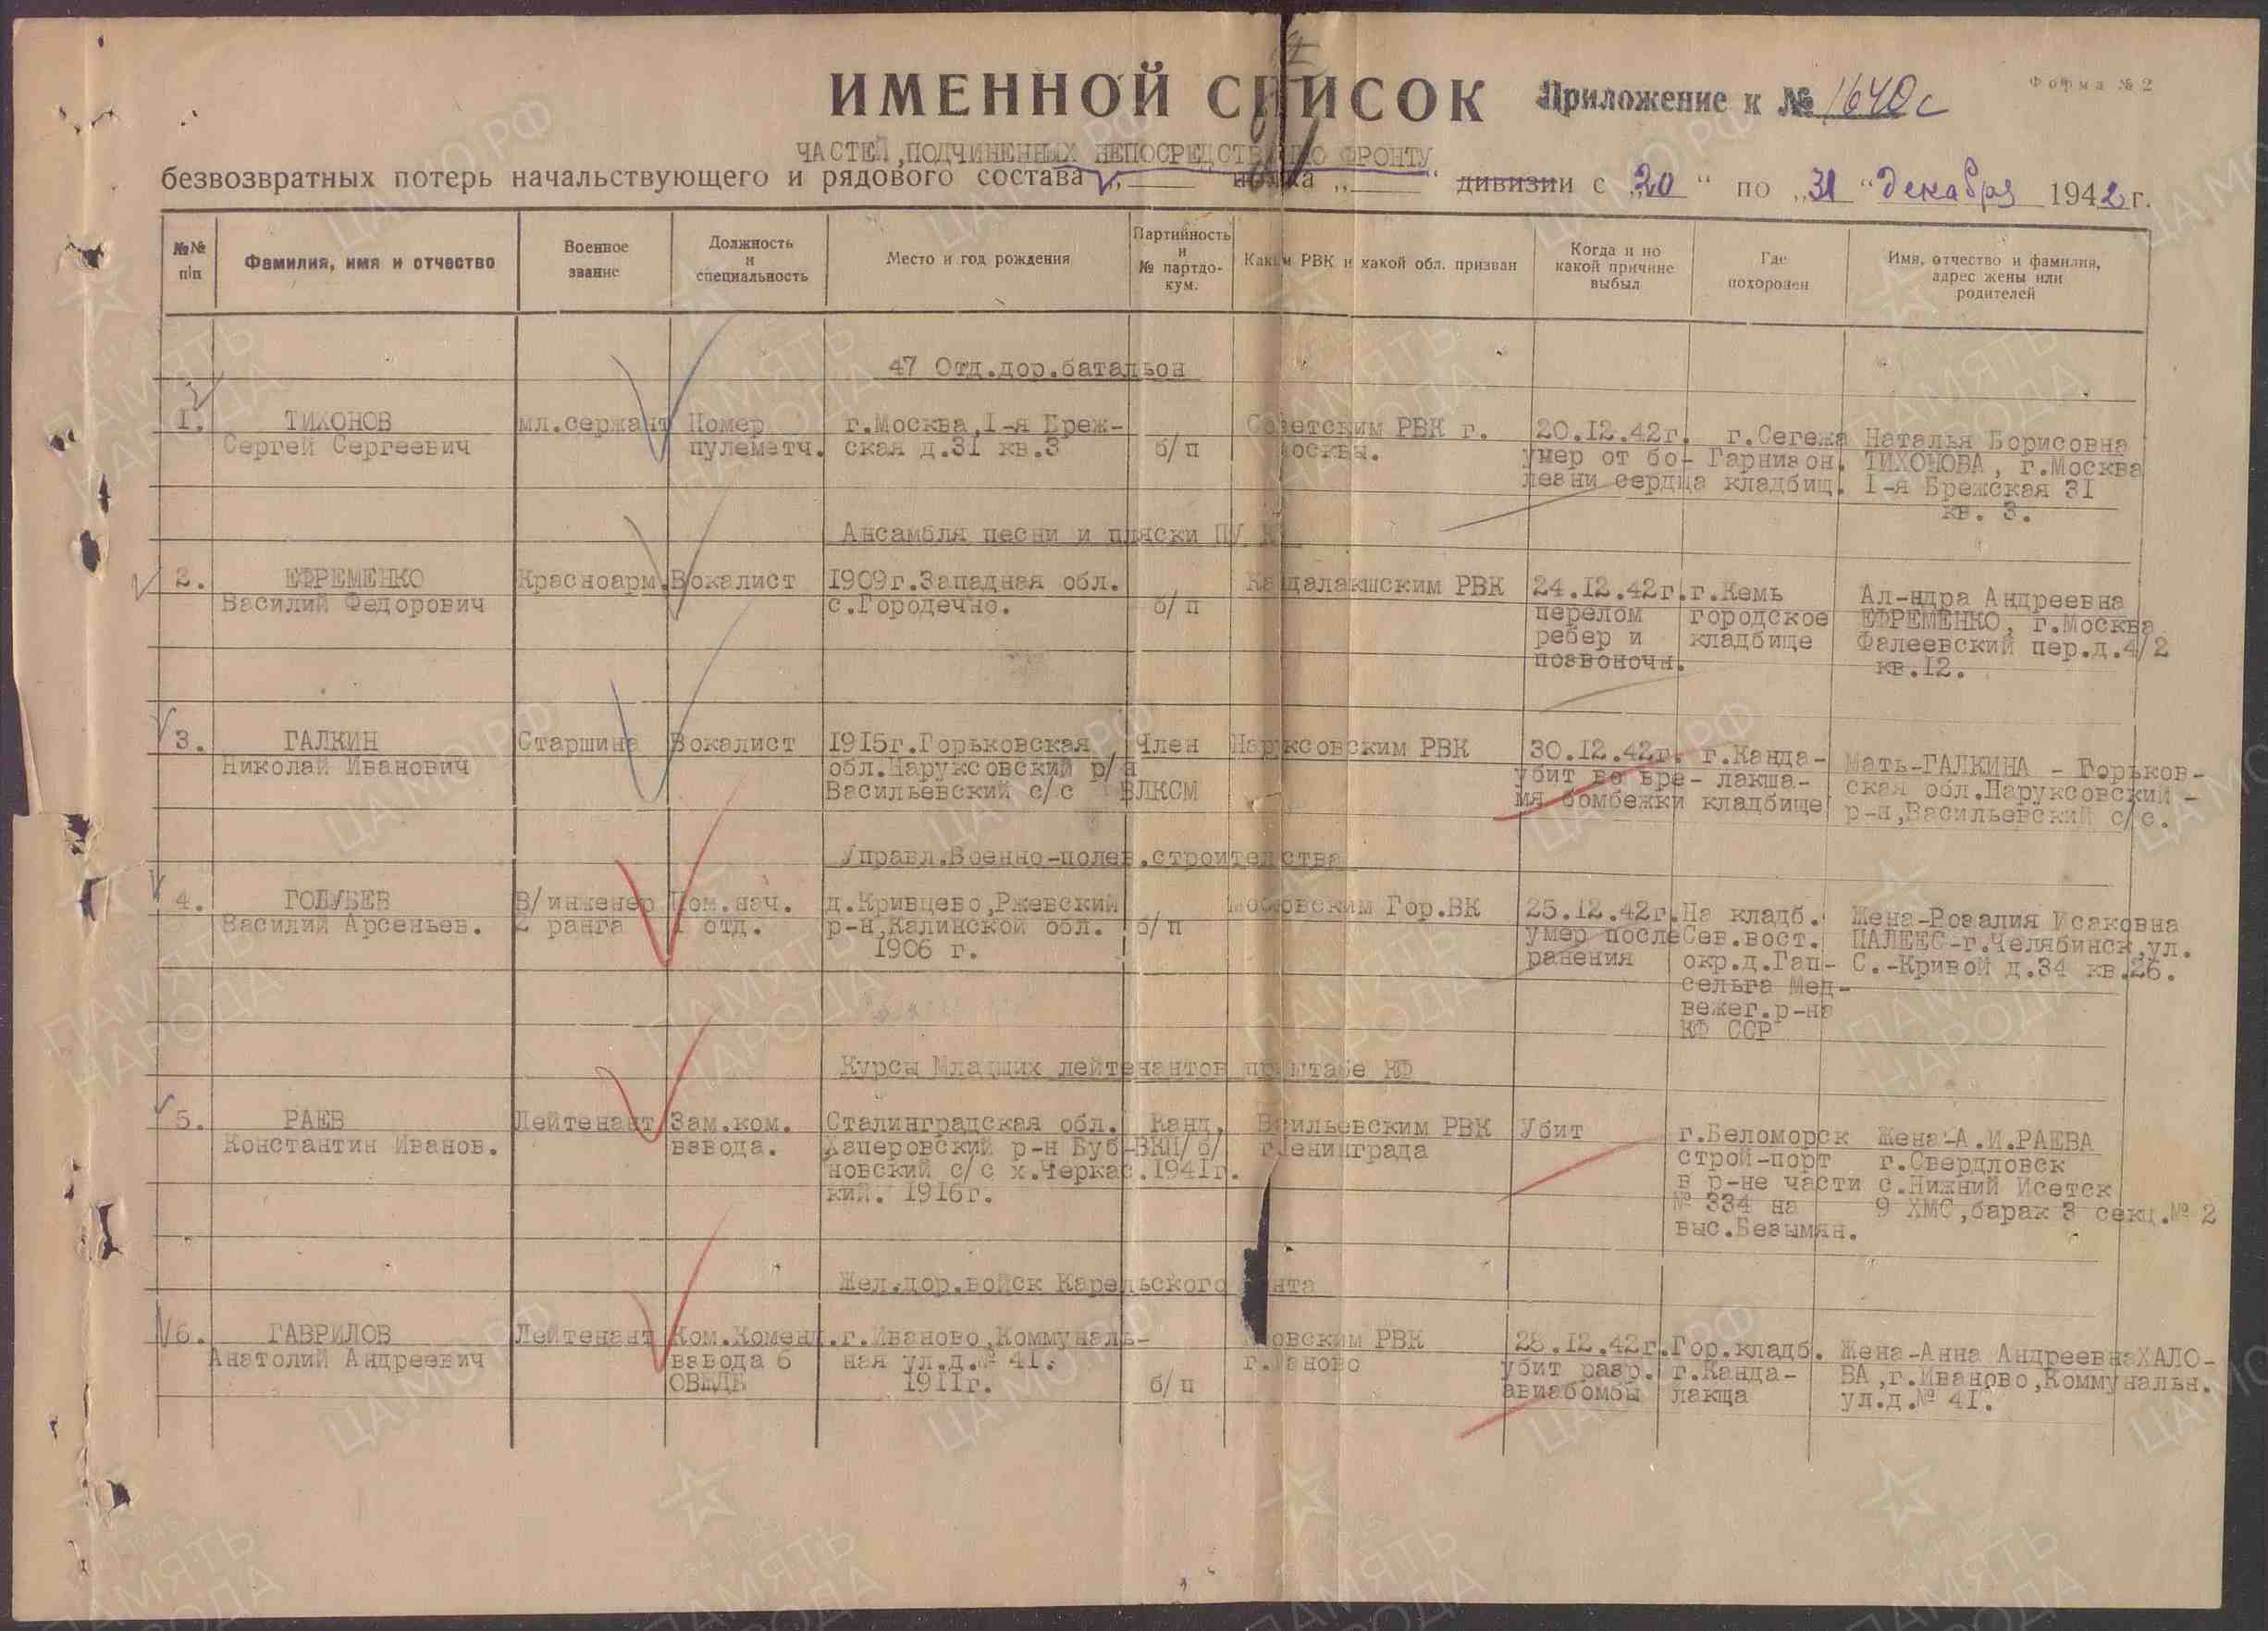 ИМЕННОЙ СПИСОК
Приложение к № 1640с
Форма № 2
ЧАСТЕЙ, ПОДЧИНЕННЫХ НЕПОСРЕДСТВЕННО ФРОНТУ
безвозвратных потерь начальствующего и рядового состава „ “ полка „ “ дивизии с „20“ по „31“ декабря 1942 г.
№№ п/п
Фамилия, имя и отчество
Военное звание
Должность и специальность
Место и год рождения
Партийность и № партдокум.
Каким РВК и какой обл. призван
Когда и по какой причине выбыл
Где похоронен
Имя, отчество и фамилия, адрес жены или родителей
47 Отд.дор.батальон
1. ТИХОНОВ мл.сержант Номер г.Москва,I-я Бреж- Советским РВК г. 20.12.42г. г.Сегежа Наталья Борисовна
Сергей Сергеевич пулеметч. ская д.31 кв.3 б/п Москвы. умер от бо- Гарнизон. ТИХОНОВА, г.Москва
лезни сердца кладбищ. I-я Брежская 31
кв. 3.
Ансамбля песни и пляски ПУ
2. ЕФРЕМЕНКО Красноарм. Вокалист 1909г.Западная обл. Кандалакшским РВК 24.12.42г. г.Кемь Ал-ндра Андреевна
Василий Федорович с.Городечно. б/п перелом городское ЕФРЕМЕНКО, г.Москва
ребер и кладбище Фалеевский пер.д.4/2
позвоночн. кв.12.
3. ГАЛКИН Старшина Вокалист 1915г.Горьковская Член Наруксовским РВК 30.12.42г. г.Канда- Мать-ГАЛКИНА - Горьков-
Николай Иванович обл.Наруксовский р/н убит во вре- лакша- ская обл.Наруксовский -
Васильевский с/с ВЛКСМ мя бомбежки кладбище р-н,Васильевский с/с.
Управл.Военно-полев.строительства
4. ГОЛУБЕВ В/инженер Пом.нач. д.Кривцево,Ржевский Московским Гор.ВК 25.12.42г. На кладб. Жена-Розалия Исаковна
Василий Арсеньев. 2 ранга 1 отд. р-н,Калинской обл. б/п умер после Сев.вост. ПАЛЕЕС-г.Челябинск,ул.
1906 г. ранения окр.д.Гап- С.-Кривой д.34 кв.26.
сельга Мед-
вежег.р-на
КФ ССР
Курсы Младших лейтенантов при штабе КФ
5. РАЕВ Лейтенант Зам.ком. Сталинградская обл. Канд. Васильевским РВК Убит г.Беломорск Жена-А.И.РАЕВА
Константин Иванов. взвода. Хаперовский р-н Буб- ВКП/б/ г.Ленинграда строй-порт г.Свердловск
новский с/с х.Черкас 1941г. в р-не части с.Нижний Исетск
кий. 1916г. № 334 на 9 ХМС,барак 3 секц.№ 2
выс.Безымян.
Жел.дор.войск Карельского
6. ГАВРИЛОВ Лейтенант Ком.Коменд. г.Иваново,Коммуналь- РВК 28.12.42г. Гор.кладб. Жена-Анна АндреевнаХАЛО-
Анатолий Андреевич взвода 6 ная ул.д.№ 41. г.Иваново убит разр. г.Канда- ВА,г.Иваново,Коммунальн.
ОВЖДБ 1911г. б/п авиабомбы лакща ул.д.№ 41.
ЦАМО.РФ
ПАМЯТЬ НАРОДА